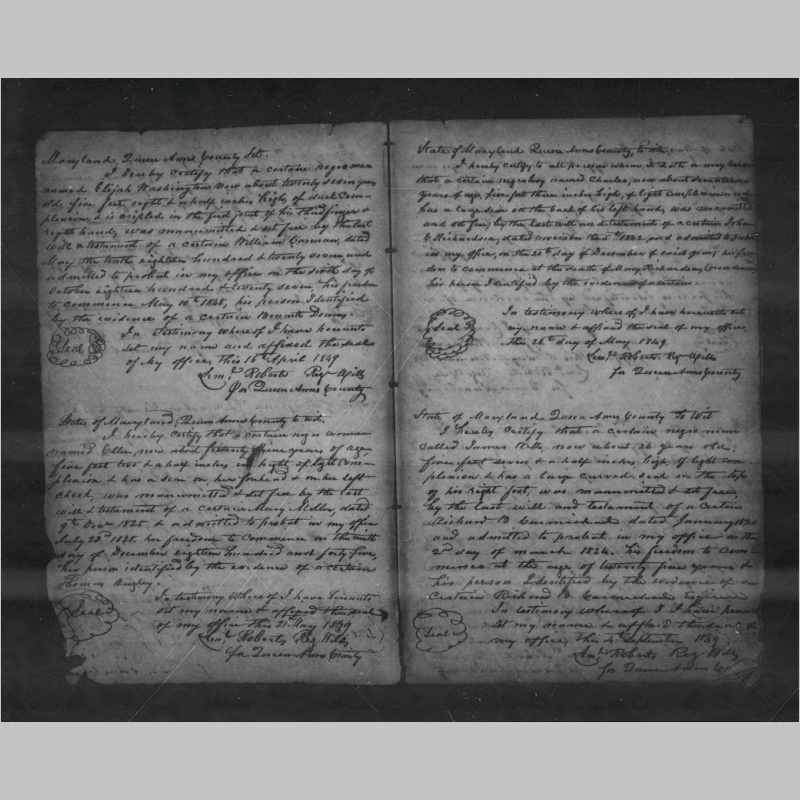 Maryland, Queen Anns County Sct.
I hereby certify that a certain negro man
named Elijah Washington now about twenty seven years
old, five feet eight & a half inches high, of dark Com-
plexion, & is crippled in the first joint of his third finger
right hand, was manumitted & set free by the last
will & testament of a certain William Corman, dated
May the tenth eighteen hundred & twenty seven, and
admitted to probat in my office on the sixth day of
October eighteen hundred & twenty seven his freedom
to commence May 10th 1848, his person Identified
by the evidence of a certain Downy.
In Testimony whereof I have hereunto
set my name and affixed the seal
of My office, this 16th April 1849
Seal
Reg Wills
For Queen Anns County
State of Maryland, Queen Anns County to wit.
I hereby certify that a certain negro woman
named Ellen, now about five years of age
five feet two & a half inches high of light Com-
plexion & has a scar on her forehead & on her left
cheek, was manumitted & set free by the last
will & testament of a certain Mary Meller, dated
9th Decr 1820 & admitted to probat in my office
July 20th 1821. her freedom to Commence on the ninth
day of December eighteen hundred and forty five,
her person identified by the evidence of a certain
Thomas
In testimony whereof I have hereunto
set my name & affixed the seal
of my office this 21 May 1849
Seal
Roberts Reg Wills
for Queen Anns County
State of Maryland Queen Anns County, to wit.
I hereby certify to all persons whom it doth or may
that a certain negro boy named Charles, now about
years of age, five feet three inches high, of light complexion and
has a large scar on the back of his left hand, was manumitted
and set free by the last will and testament of a certain John
C Richardson, dated november 1822 and admitted to probat
in my office, on the 20th day of December of said year, his free-
dom to commence at the death of Mary Richardson
his person Identified by the evidence of a certain
In testimony whereof I have hereunto set
my name & affixed the seal of my office
this 26th day of May 1849
Seal
Roberts Reg Wills
for Queen Anns County
State of Maryland Queen Anns County To Wit
I hereby certify that a certain negro man
called James now about 26 years old,
five feet seven & a half inches high, of light com-
plexion & has a large curved scar on the top
of his right foot, was manumitted & set free
by the last will and testament of a certain
Richard B Carmichael dated January
and admitted to probat in my office on the
2nd day of march 1824. his freedom to com-
mence at the age of twenty five years &
his person Identified by the evidence of a
certain Richard B Carmichael
In testimony whereof I have
set my name & affixed the seal of
my office, this 4 September 1849
Seal
Roberts Reg Wills
for Queen Anns Co